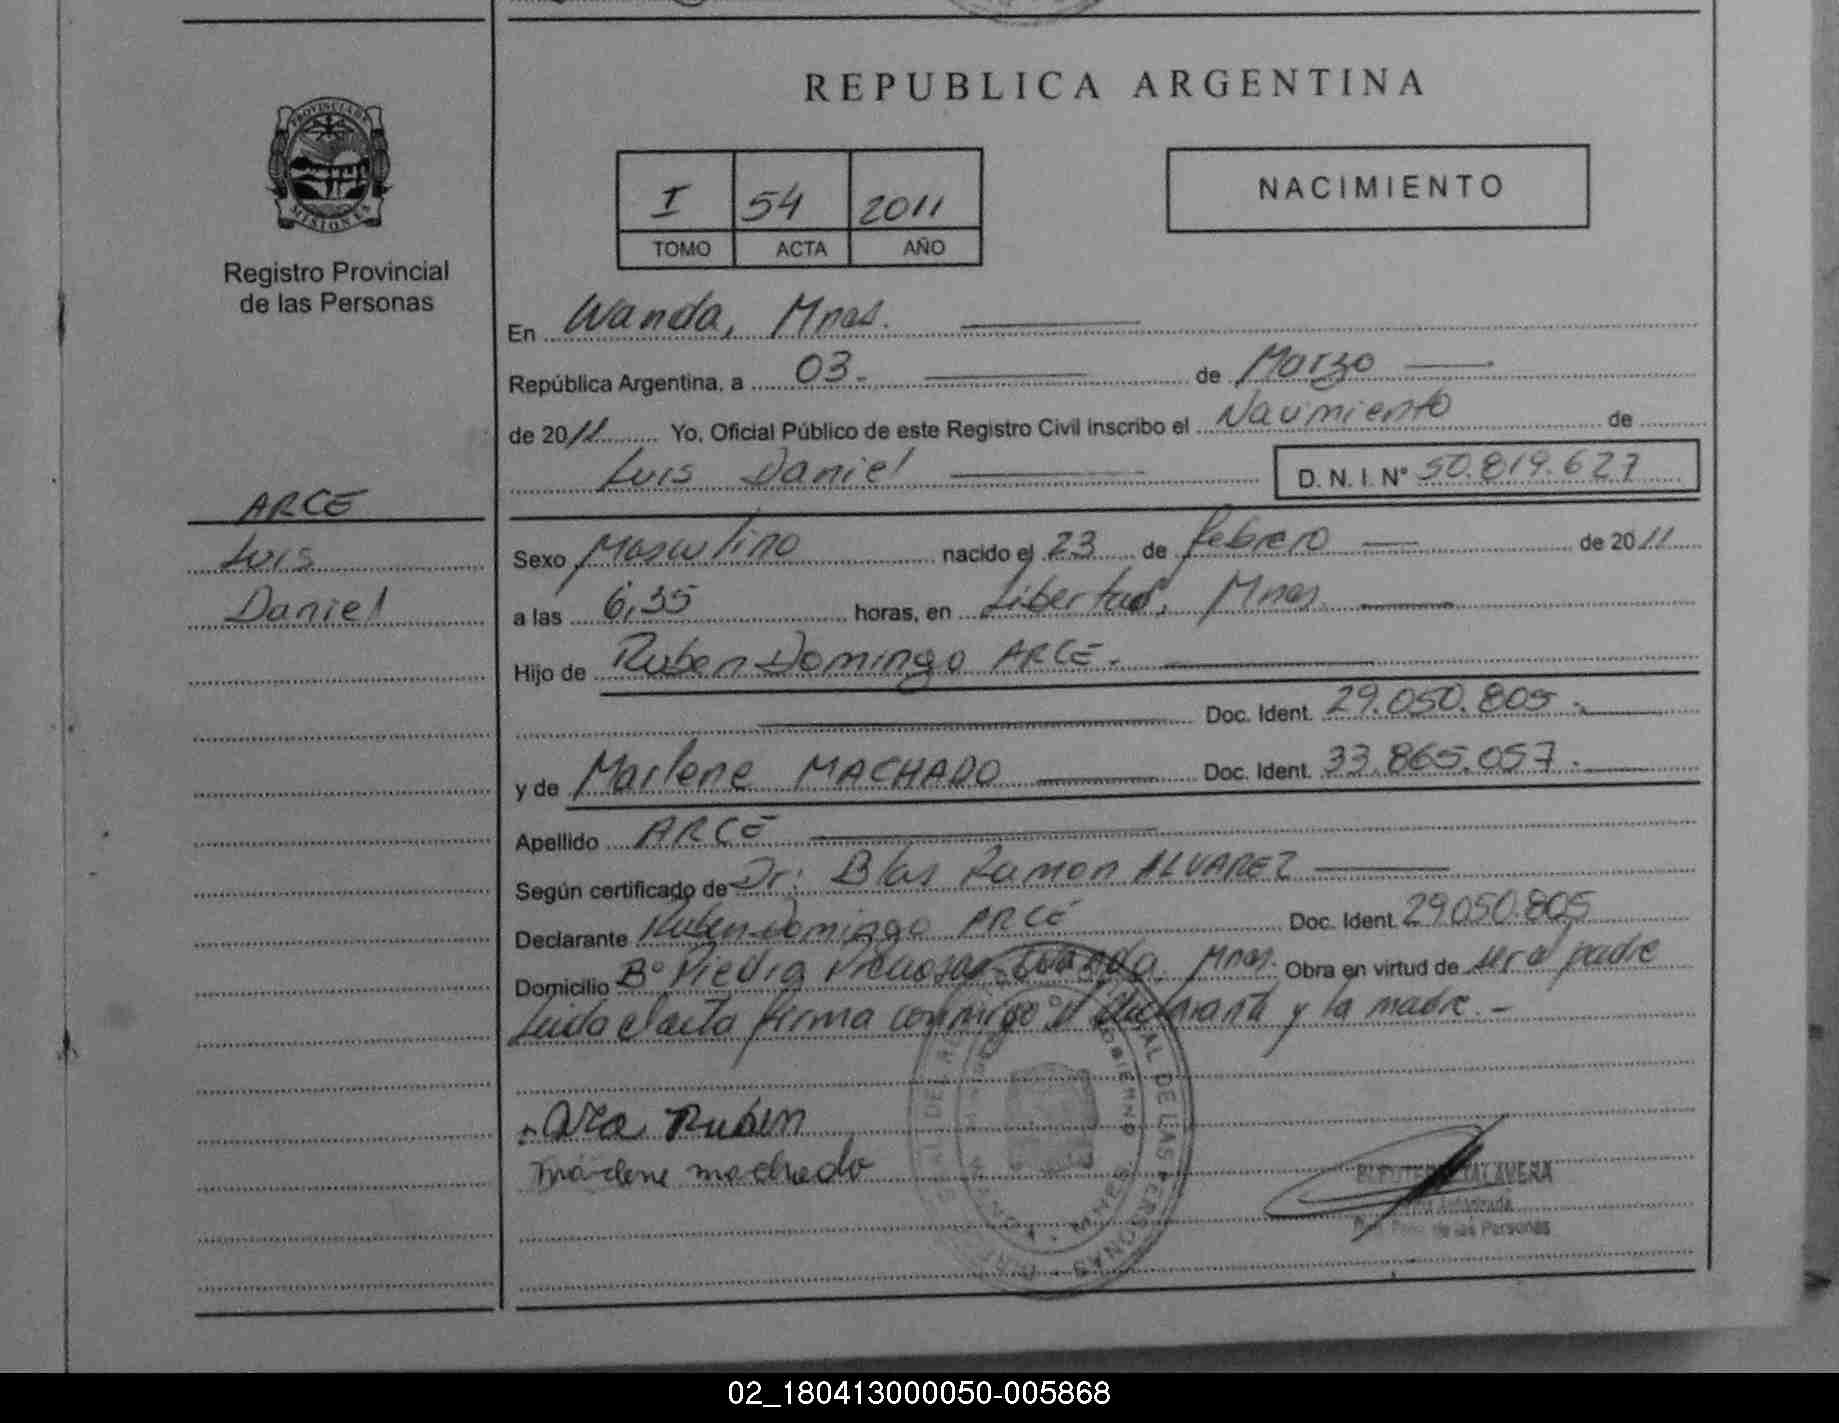 REPUBLICA ARGENTINA
PROVINCIA DE MISIONES
Registro Provincial
de las Personas
I 54 2011
TOMO ACTA AÑO
NACIMIENTO
En Wanda, Mnes.
República Argentina, a 03. de Marzo
de 2011 Yo, Oficial Público de este Registro Civil inscribo el Nacimiento de
Luis Daniel D. N. I. N° 50.819.627
ARCE
Luis
Daniel
Sexo Masculino nacido el 23 de febrero de 2011
a las 6,35 horas, en Libertad, Mnes.
Hijo de Ruben Domingo ARCE.
Doc. Ident. 29.050.805.
y de Marlene MACHADO Doc. Ident. 33.865.057.
Apellido ARCE
Según certificado de Dr: Blas Ramon ALVAREZ
Declarante Ruben Domingo ARCE Doc. Ident. 29.050.805
Domicilio B° Piedra Wanda, Mnes. Obra en virtud de ser el padre
Leida el acta firma conmigo el declarante y la madre.-
Arce Ruben
marlene machado
DE LAS PERSONAS
TALAVERA
de las Personas
02_180413000050-005868